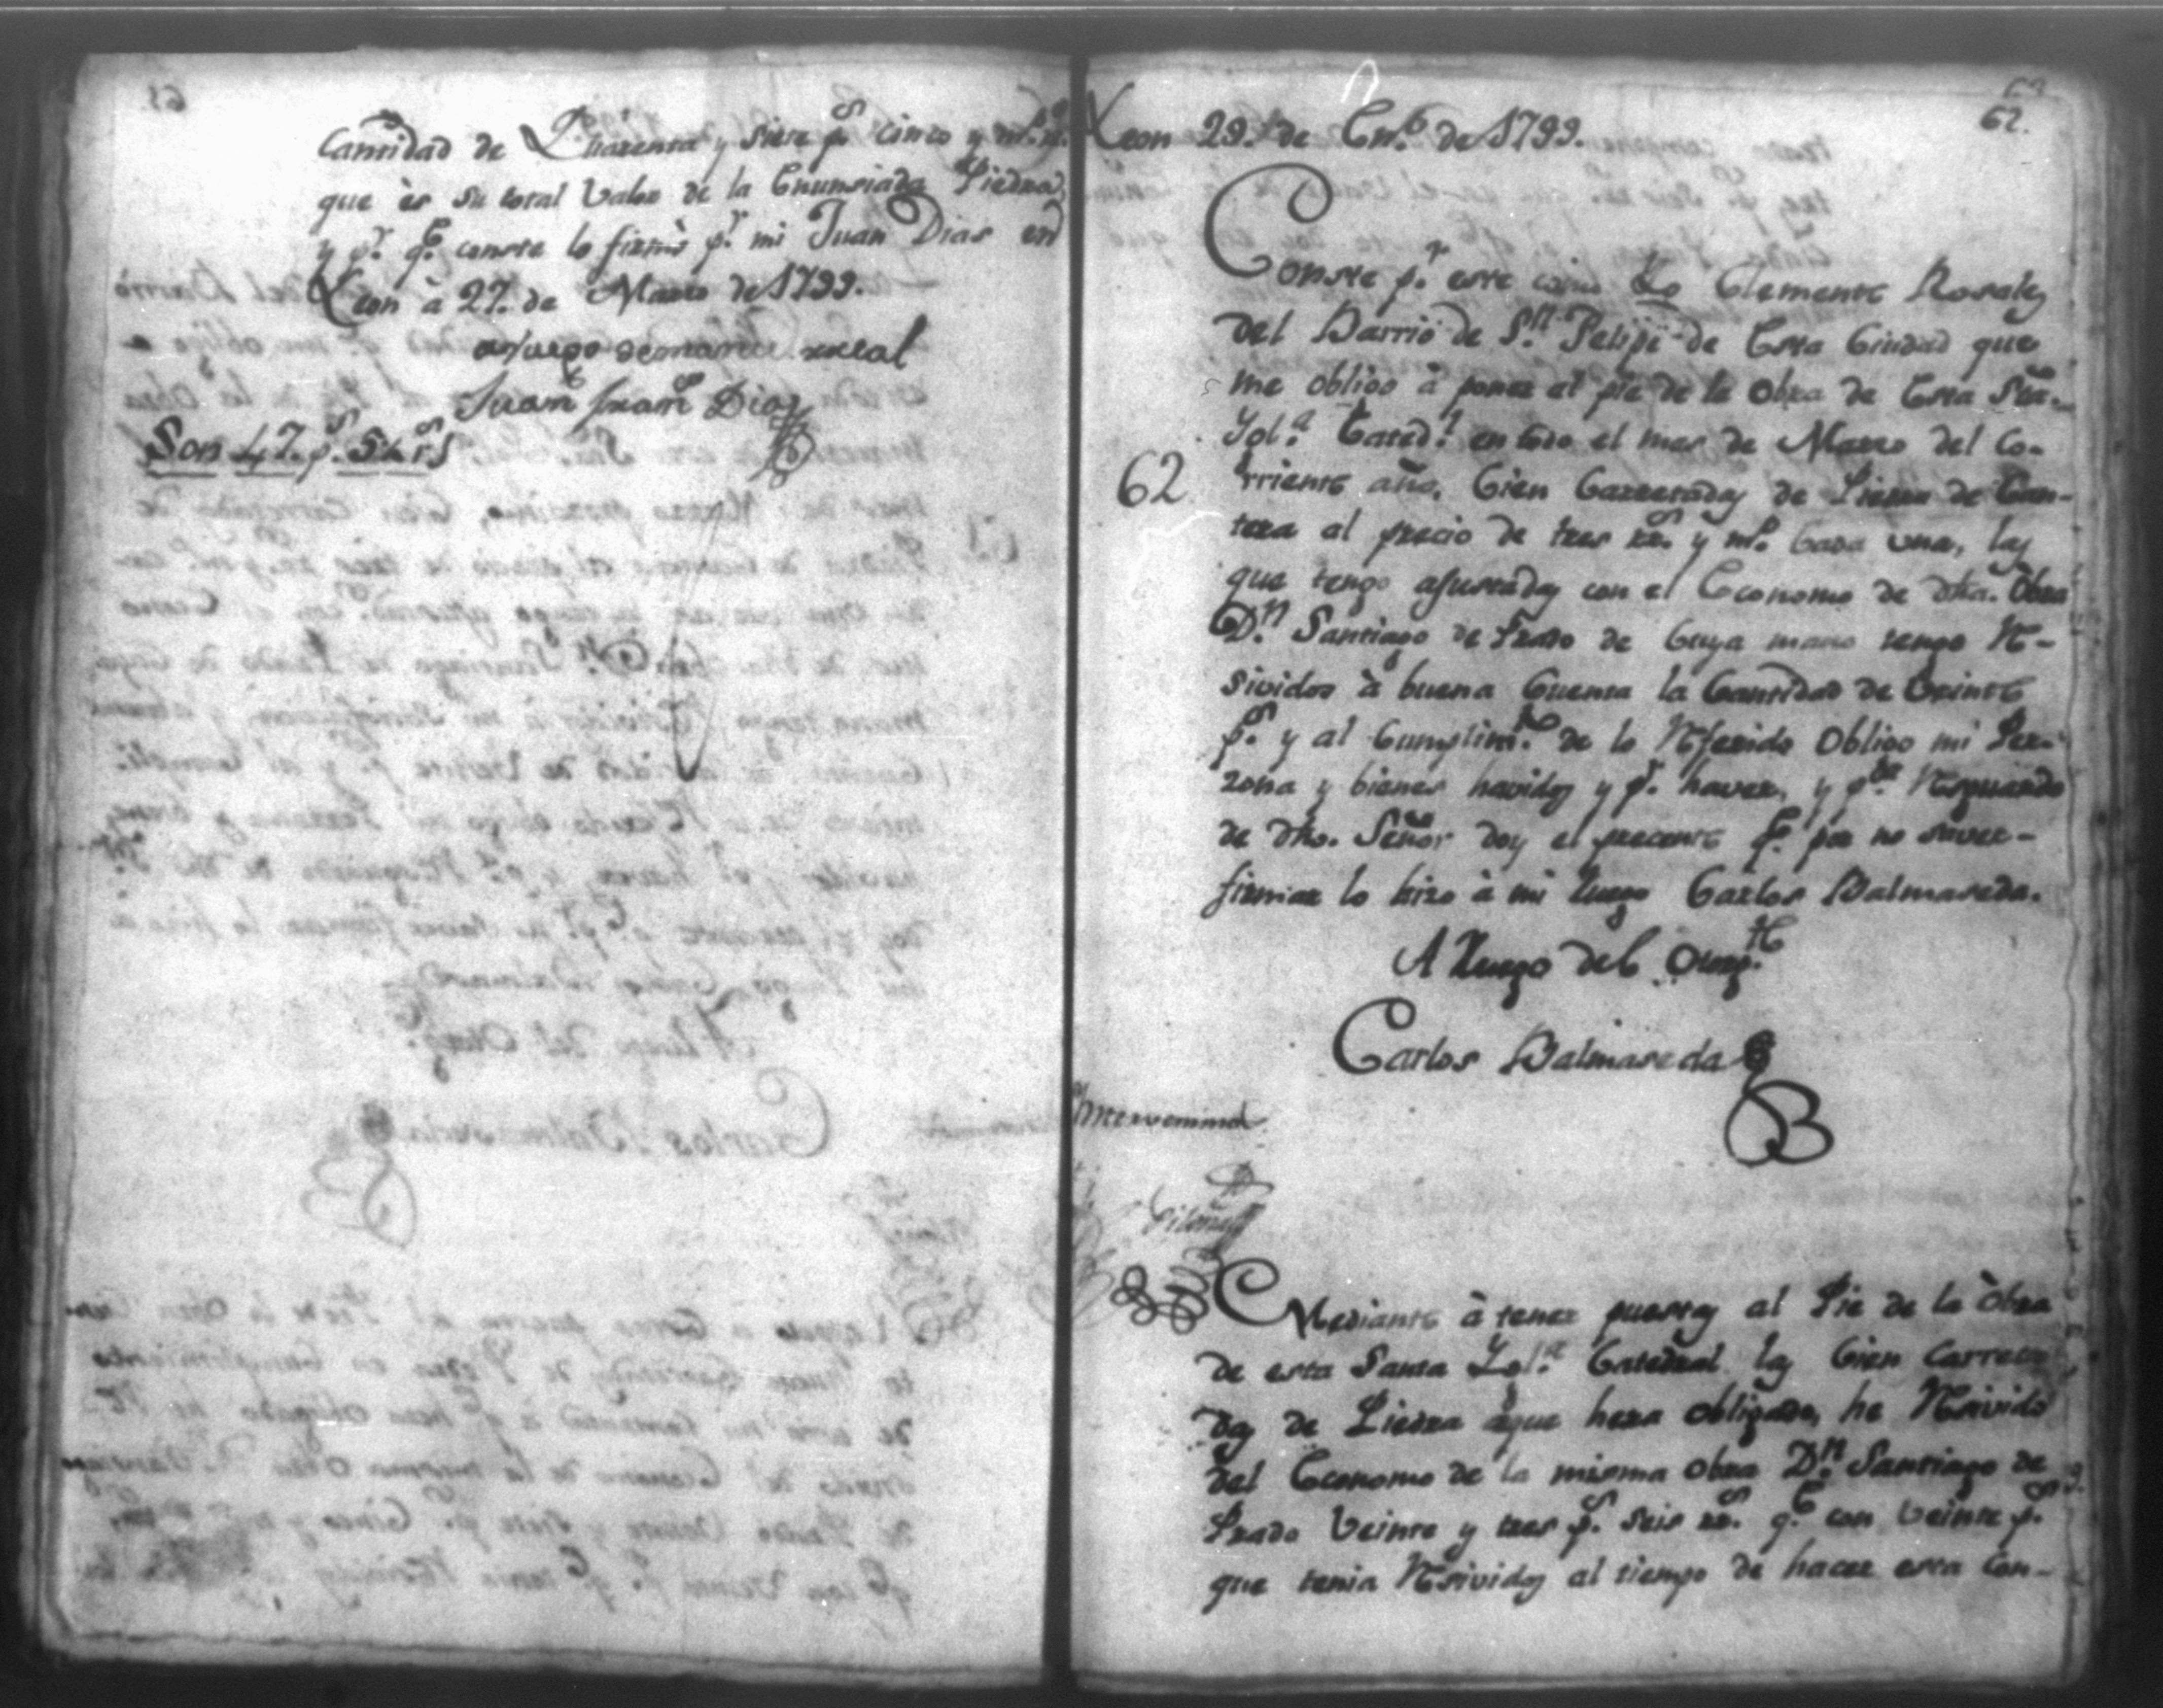 Cantidad de Quarenta y siete p.s cinco y m.o r.s
que ès su total Valor de la Enunsiada Piedra,
y p.r q.e conste lo firmò p.r mi Juan Dias en
Leon à 27. de Marzo de 1799.
a ruego de manuel rreal
Juan Juan Diaz
Son 47. p.s 5½ r.s
62.
Leon 29. de En.o de 1799.
Conste p.r este como Yo Clemente Rosales
del Barrio de S.n Pelipe de Esta Ciudad que
me obligo à poner al pie de la Obra de Esta Sta.
Ygl.a Cated.l en todo el mes de Marzo del Co-
62
rriente año, Cien Carretadas de Piedra de Can-
tera al precio de tres rr.s y m.o Cada una, las
que tengo ajustadas con el Economo de dha. Obra
D.n Santiago de Prado de Cuya mano tengo Re-
sividos à buena Cuenta la Cantidad de Veinte
p.s y al Cumplim.to de lo Referido Obligo mi Per-
zona y bienes havidos y p.r haver, y p.a Resguardo
de dho. Señor doy el precente q.e por no saver
firmar lo hizo à mi Ruego Carlos Balmaseda.
A Ruego del Otorg.te
Carlos Balmaseda
Mediante à tener puestas al Pie de la Obra
de esta Santa Ygl.a Catedral las Cien Carreta
das de Piedra àque hera obligado, he Resivido
del Economo de la misma Obra D.n Santiago de
Prado Veinte y tres p.s seis rr.s q.e con Veinte p.s
que tenia Resividos al tiempo de hacer esta Con-